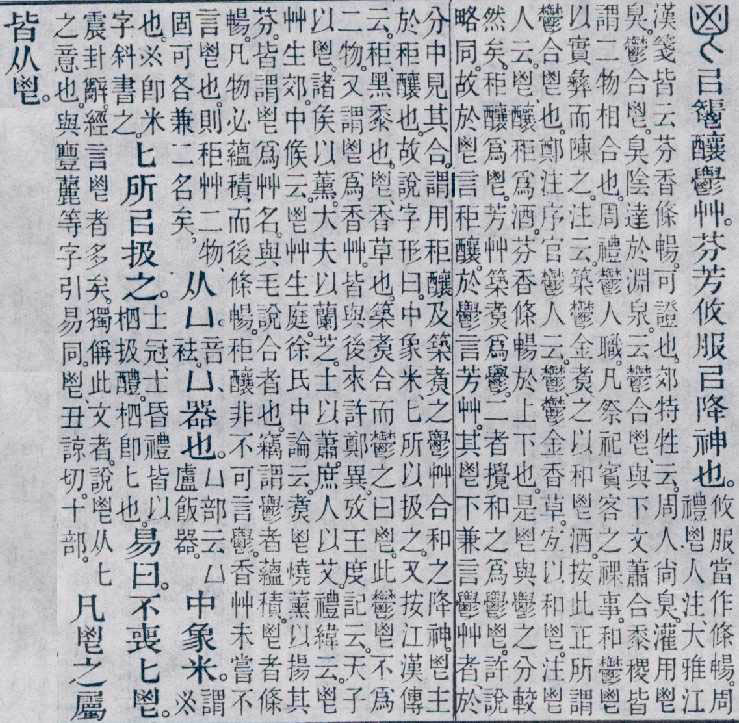 㠯𩰪釀鬱艸。芬芳攸服㠯降神也。攸服當作條暢。周禮鬯人注大雅江
漢箋皆云。芬香條暢。可證也。郊特牲云。周人尙臭。灌用鬯
臭。鬱合鬯。臭陰達於淵泉。云鬱合鬯。與下文蕭合黍稷皆
謂二物相合也。周禮鬱人職。凡祭祀賓客之祼事。和鬱鬯
以實彝而陳之。注云。築鬱金煑之以和鬯酒。按此正所謂
鬱合鬯也。鄭注序官鬱人云。鬱鬱金香草。宐以和鬯。注鬯
人云。鬯釀秬爲酒。芬香條暢於上下也。是鬯與鬱之分較
然矣。秬釀爲鬯。芳艸築煑爲鬱。二者攪和之爲鬱鬯。許說
略同。故於鬯言秬釀。於鬱言芳艸。其鬯下兼言鬱艸者於
分中見其合。謂用秬釀及築煑之鬱艸合和之降神。鬯主
於秬釀也。故說字形曰。中象米。匕所以扱之。又按江漢傳
云。秬黑黍也。鬯香草也。築煑合而鬱之曰鬯。此鬱鬯不爲
二物。又謂鬯爲香艸。皆與後來許鄭異。攷王度記云。天子
以鬯。諸侯以薰。大夫以蘭芝。士以蕭。庶人以艾。禮緯云。鬯
艸生郊。中候云。鬯艸生庭。徐氏中論云。煑鬯燒薰以揚其
芬。皆謂鬯爲艸名。與毛說合者也。竊謂鬱者蘊積。鬯者條
暢。凡物必蘊積而後條暢。秬釀非不可言鬱。香艸未嘗不
言鬯也。則秬艸二物固可各兼二名矣。从凵。音祛。凵器也。凵部云凵盧飯器。中象米。謂※
也。※卽米字斜書之。匕所㠯扱之。士冠士昏禮皆以柶扱醴。柶卽匕也。易曰。不喪匕鬯。
震卦辭。經言鬯者多矣。獨偁此文者。說鬯从匕之意也。與豐麗等字引易同。鬯丑諒切。十部。凡鬯之屬
皆从鬯。